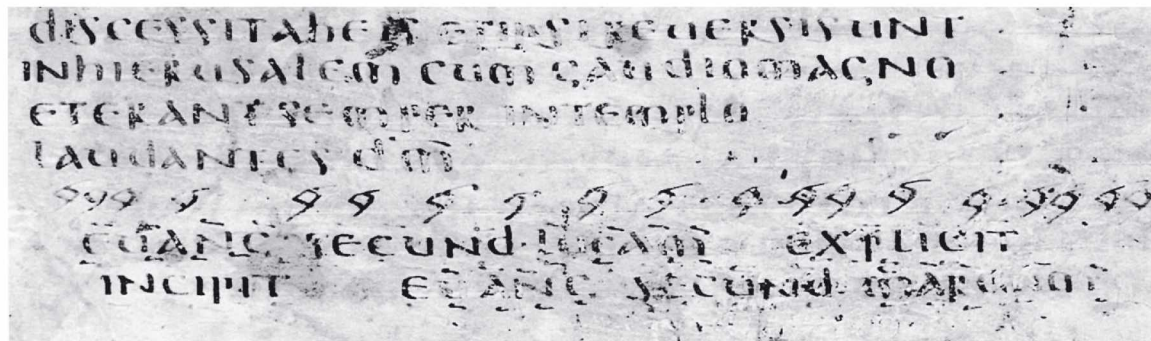 discessitabeis etipsireuersisunt
inhierusalem cum gaudiomagno
eterantsemper intemplo
laudantes dm̄
euang secund lucam explicit
incipit euang secund marcum